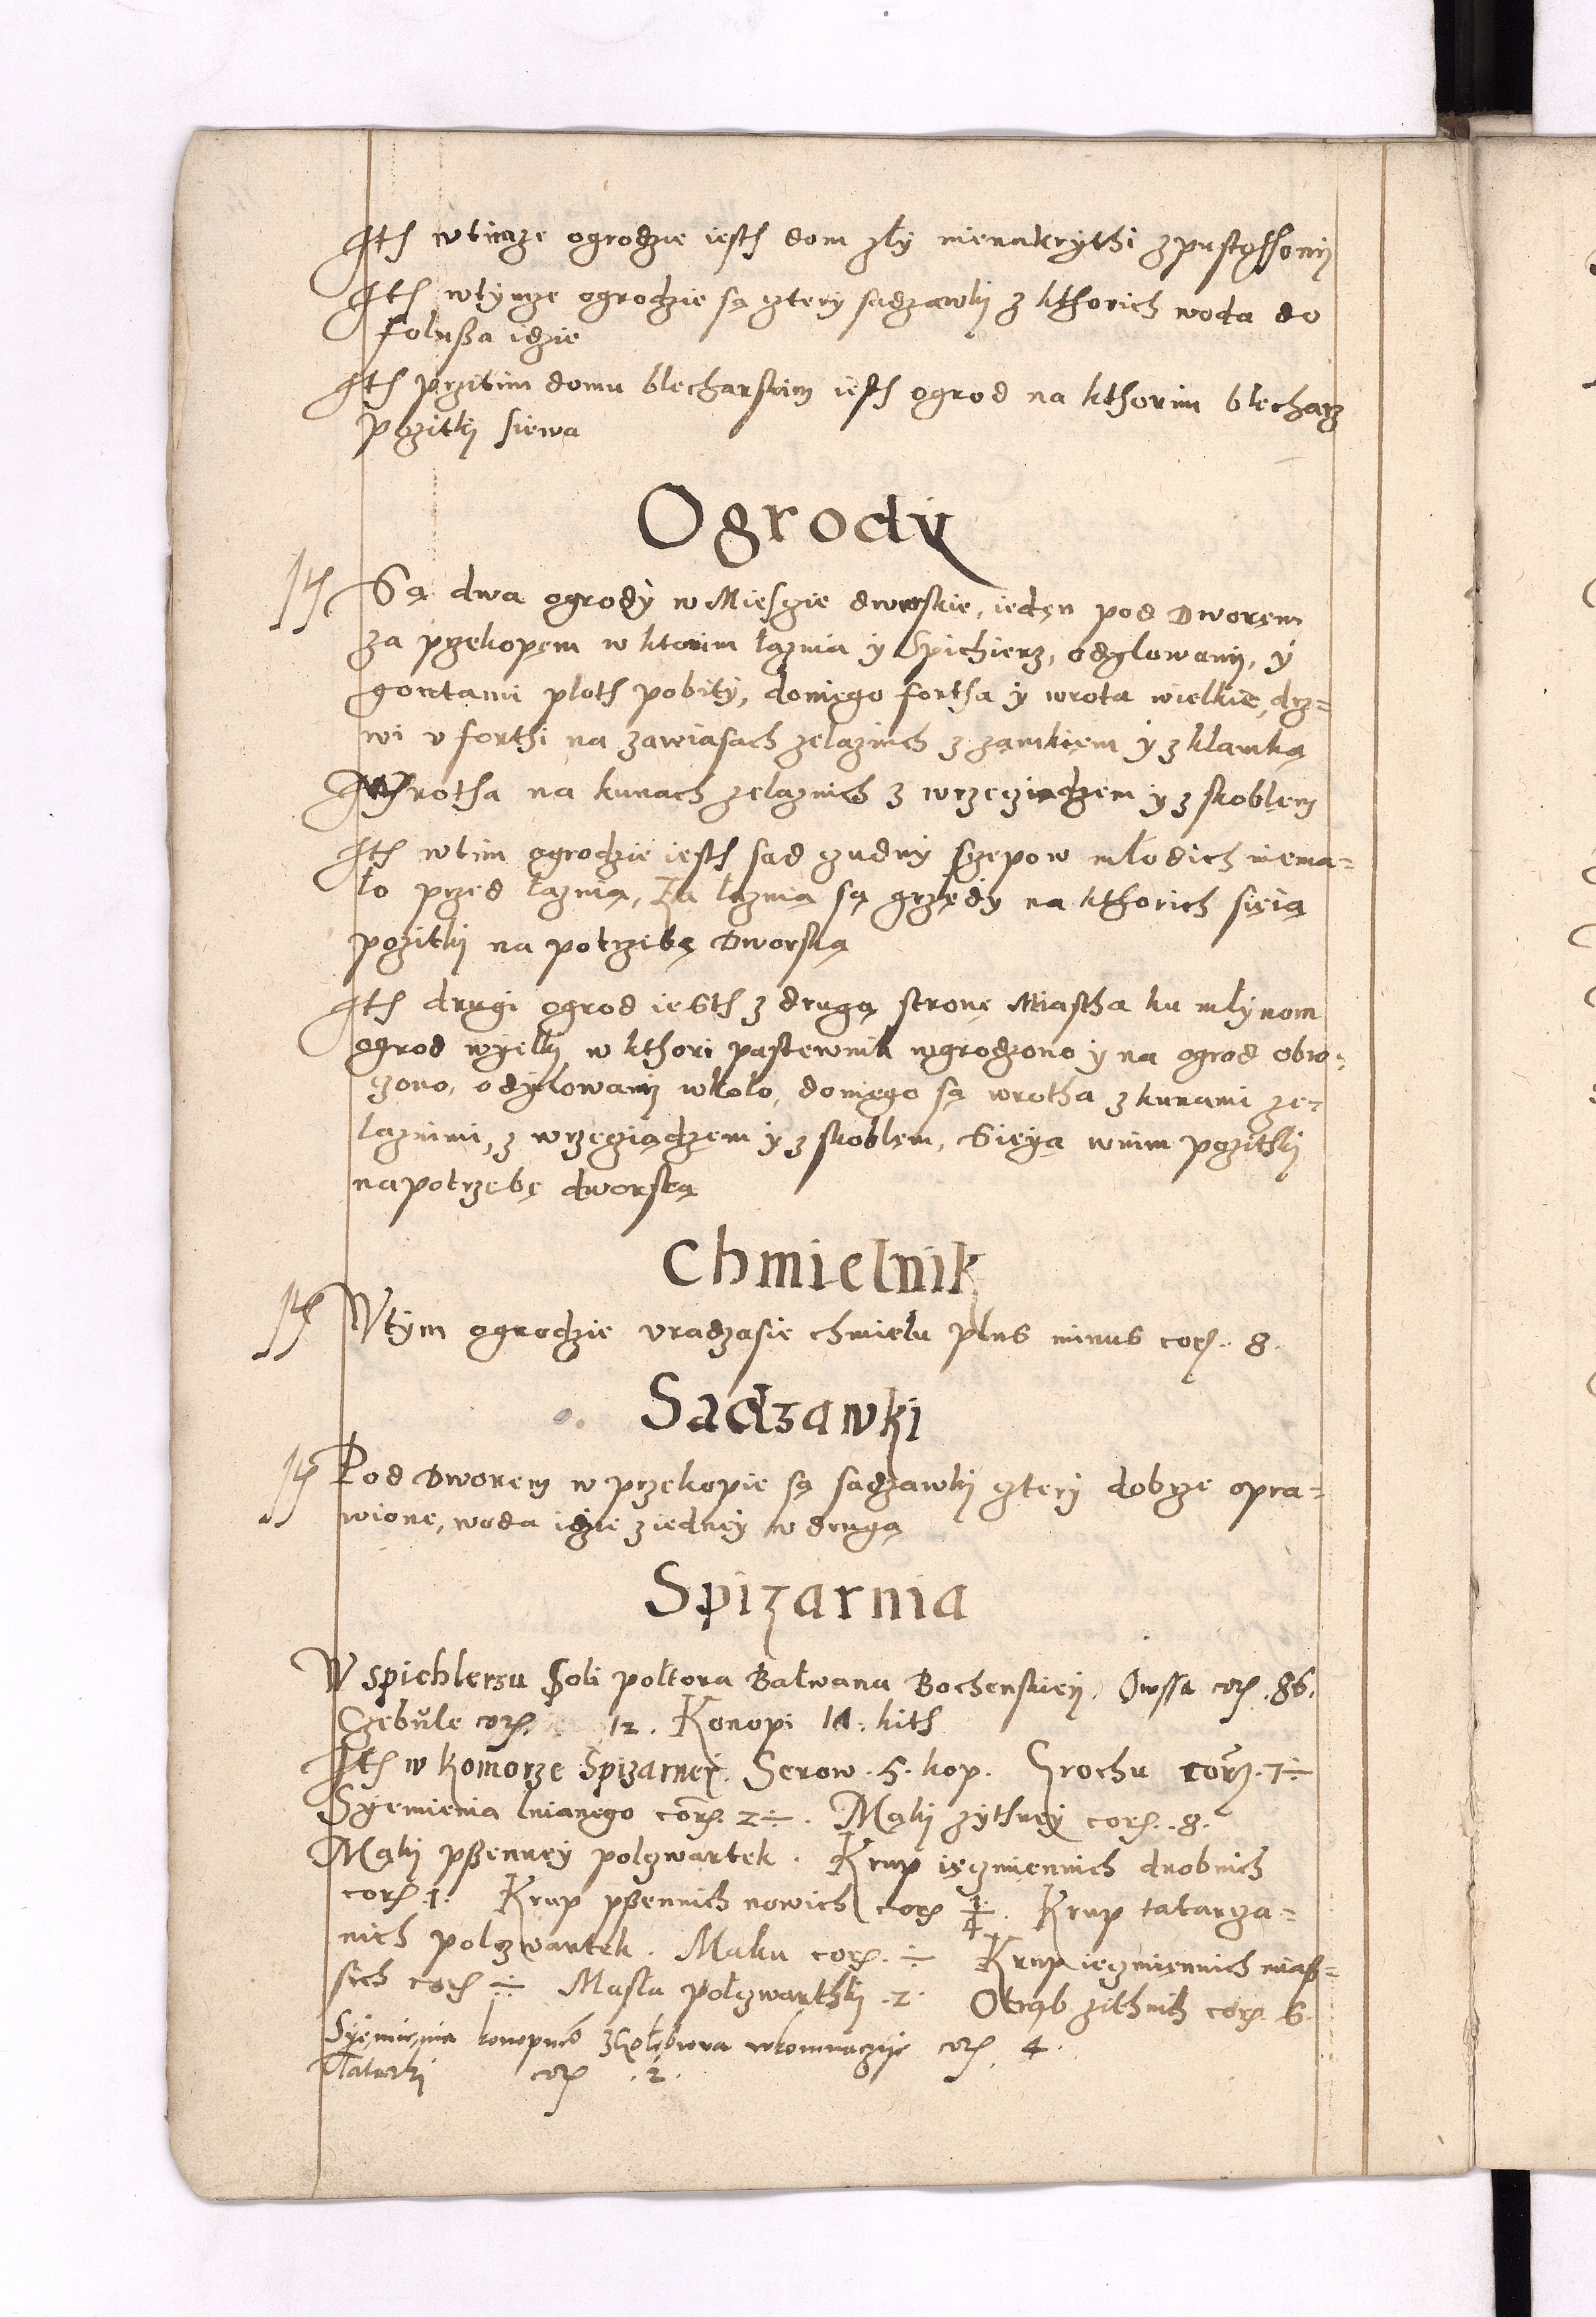 Ith wtimze ogrodzie iesth dom zły nienakrythi zpustossony
Ith wtymze ogrodzie są cztery sadzawki z kthorich woda do
folußa idzie
Ith przitim domu blecharskim iesth ogrod na kthorim blecharz
pozitki siewa
Ogrody
Są dwa ogrody w Miescie dworskie, ieden pod Dworem
za przekopem w ktorim łaznia y Spichierz, odylowany, y
gontami ploth pobity, doniego fortha y wrota wielkie, drz=
wi v forthi na zawiasach zelaznich z zamkiem y z klamką
Wrotha na kunach zelaznich z wrzeciądzem y z skoblem
Ith wtim ogrodzie iesth sad cudny sczepow młodich niema=
ło przed łaznią, Za łaznią są grzędy na kthorich sieią
pozitki na potrzebę Dworską
Ith drugi ogrod iesth z drugą stronę Miastha ku mlynom
ogrod wyelki w kthori pastewnik wgrodzono y na ogrod obro=
czono, odylowany wkolo, doniego są wrotha z kunami ze=
laznimi, z wrzeciądzem y z skoblem, Sieyą wnim pozithki
napotrzebę dworską
Chmielnik
Wtym ogrodzie vradzasie chmielu plus minus cor. 8.
Sadzawki
Pod Dworem w przekopie są sadzawki cztery dobrze opra=
wione, woda idzie ziedney w drugą
Spizarnia
W spichlerzu Soli połtora Bałwana Bochenskiey. Owssa cor. 86.
Czebule cor. 12. Konopi 14. kith
Ith w komorze Spizarney. Serow . 5. kop. Grochu cor. 7 ÷
Syemienia lnianego cor. 2 ÷. Mąki zythney cor. 8.
Mąki pßenney polczwartek . Krup ięczmiennich drobnich
cor. 1. Krup pßennich nowich cor 1/4. Krup tatarcza=
nich polczwartek . Maku cor. ÷ Krup ięczmiennich miąß=
sich cor ÷ Masła połczwarthki .2. Otrąb zithnich cor. 6.
Syemienia cor. 4.
Tatarki cor .2.